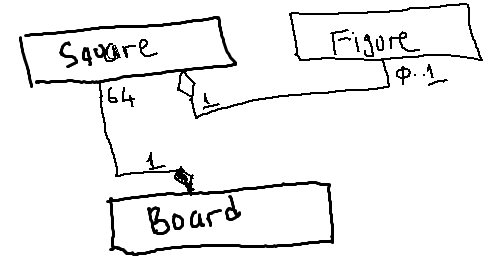 Square
Figure
64
1
0..1
1
Board